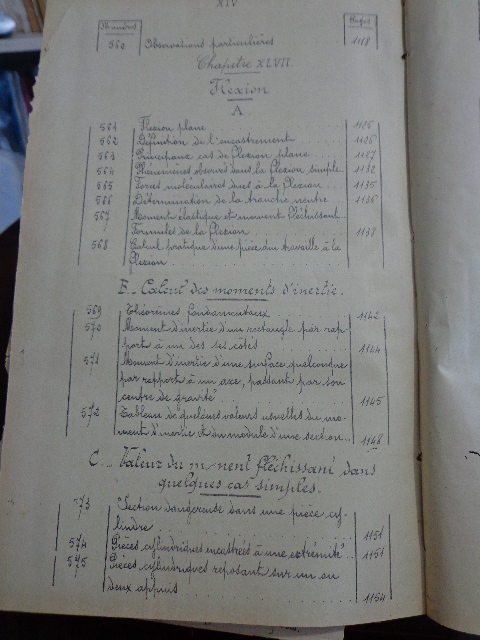 XIV
Numéros Pages
560 Observations particulières 1118
Chapitre XLVII.
Flexion
A.
561 Flexion plane 1126
562 Définition de l'encastrement 1126
563 Principaux cas de flexion plane 1127
564 Phénomènes observés dans la flexion simple 1132
565 Forces moléculaires dues à la flexion 1135
566 Détermination de la tranche neutre 1136
567 Moment élastique et moment fléchissant
Formules de la flexion 1138
568 Calcul pratique d'une pièce qui travaille à la
flexion
B. Calcul des moments d'inertie.
569 Théorèmes fondamentaux 1142
570 Moment d'inertie d'un rectangle par rap-
port à un des ses côtés 1144
571 Moment d'inertie d'une surface quelconque
par rapport à un axe, passant par son
centre de gravité 1145
572 Tableau de quelques valeurs usuelles du mo-
ment d'inertie et du module d'une section 1148
C. Valeur du m nent fléchissant dans
quelques cas simples.
573 Section dangereuse dans une pièce cy-
lindre 1151
574 Pièces cylindriques encastrées à une extrémité 1151
575 Pièces cylindriques reposant sur un ou
deux appuis 1154